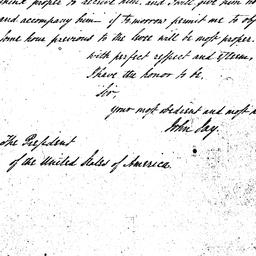 think proper to receive him, and I will give him no
and accompany him. if tomorrow permit me to ob
some hour previous to the levee will be most proper.
with perfect respect and Esteem,
I have the honor to be.
Sir,
your most obedient and most
John Jay.
The President
of the United States of America.